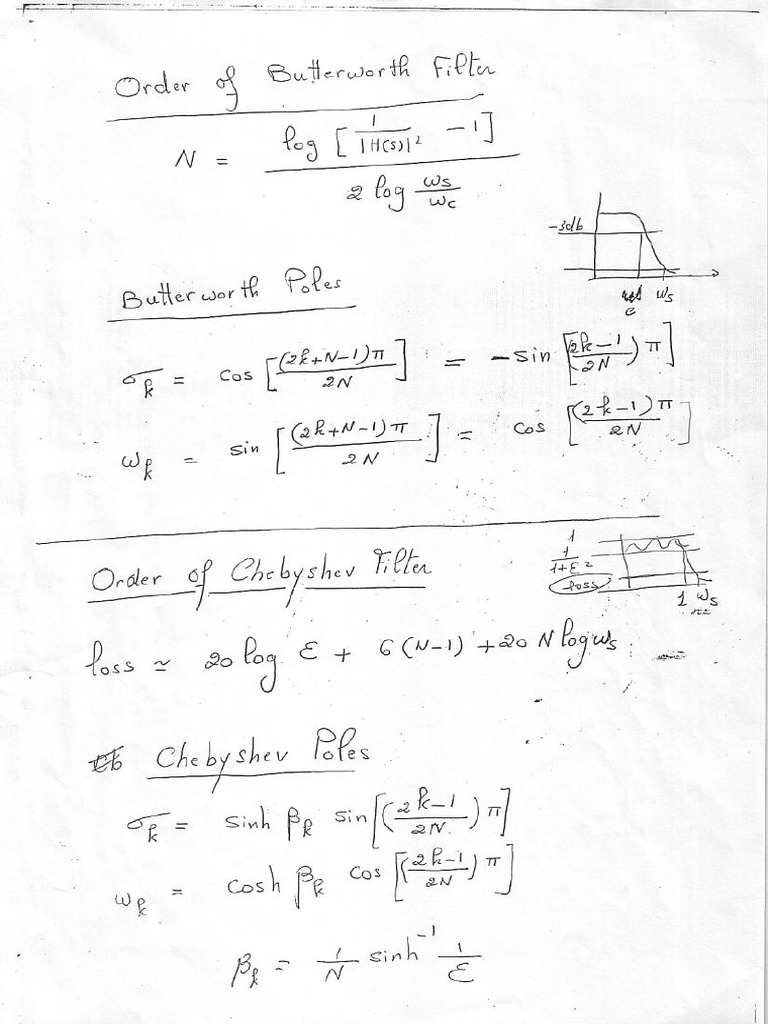 Order of Butterworth Filter
N = log [ 1/|H(s)|² − 1 ] / 2 log ωs/ωc
−3db
c ωs
Butterworth Poles
σk = cos [ (2k+N−1)π / 2N ] = −sin [ (2k−1 / 2N) π ]
ωk = sin [ (2k+N−1)π / 2N ] = cos [ (2k−1)π / 2N ]
1
1/1+ε²
loss
1 ωs
Order of Chebyshev Filter
loss ≃ 20 log ε + 6(N−1) + 20 N log ωs
Chebyshev Poles
σk = sinh βk sin [ (2k−1 / 2N) π ]
ωk = cosh βk cos [ (2k−1 / 2N) π ]
βk = 1/N sinh⁻¹ 1/ε